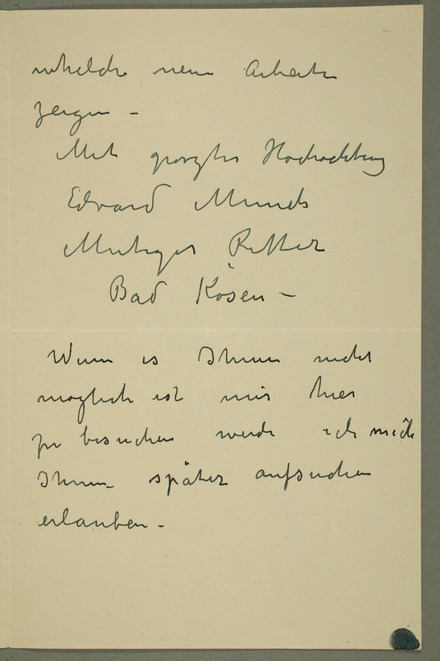 neue Arbeiten
zeigen –
Mit groszter Hochachtung
Edvard Munch
Mutiger Ritter
Bad Kösen –
Wenn es Ihnen nicht
moglich ist mir hier
zu besuchen werde ich mich
Ihnen später aufsuchen
erlauben –